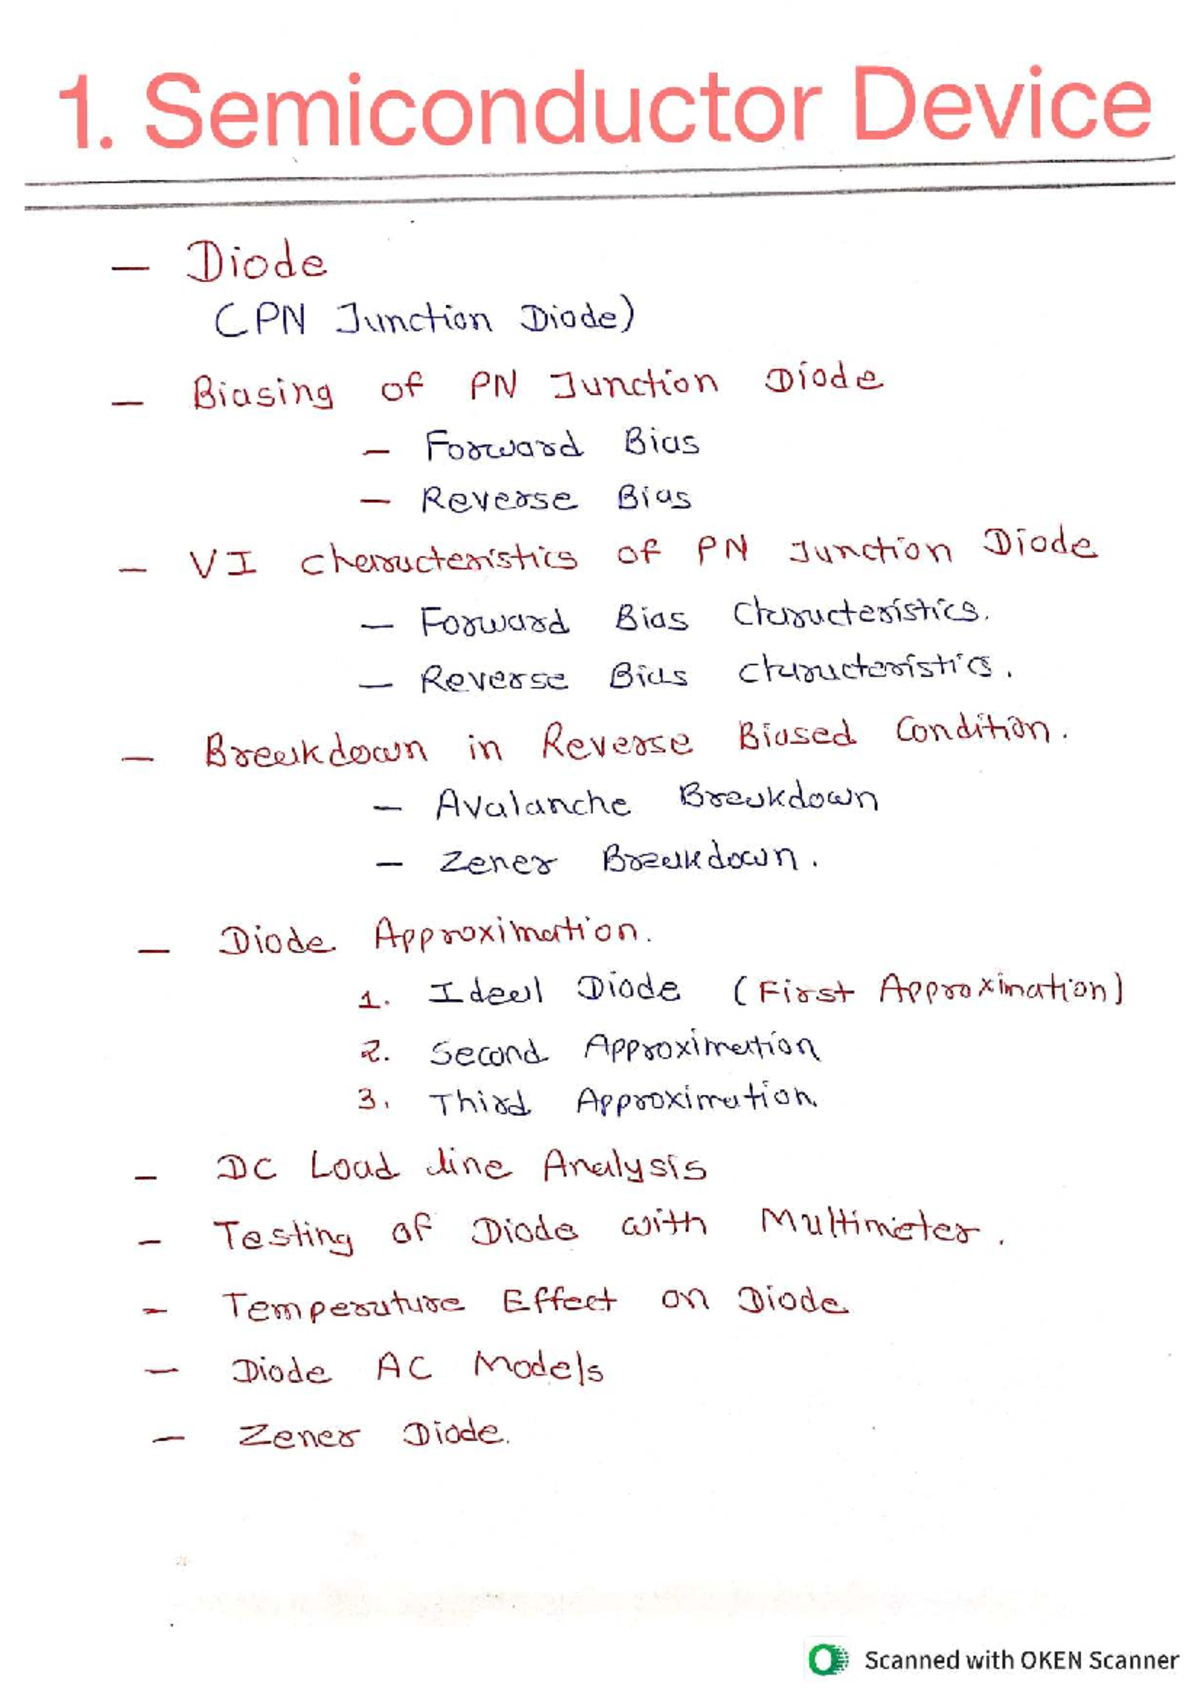 1. Semiconductor Device
— Diode
(PN Junction Diode)
— Biasing of PN Junction Diode
— Forward Bias
— Reverse Bias
— VI Characteristics of PN Junction Diode
— Forward Bias Characteristics.
— Reverse Bias Characteristics.
— Breakdown in Reverse Biased Condition.
— Avalanche Breakdown
— Zener Breakdown.
— Diode Approximation.
1. Ideal Diode (First Approximation)
2. Second Approximation
3. Third Approximation
— DC Load line Analysis
— Testing of Diode with Multimeter.
— Temperature Effect on Diode
— Diode AC Models
— Zener Diode.
Scanned with OKEN Scanner